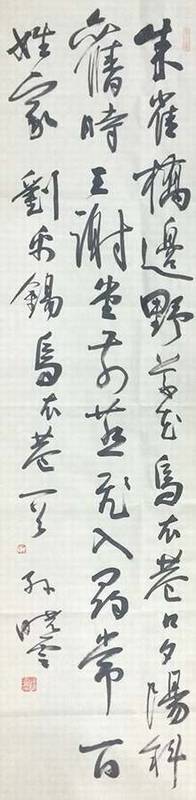 朱雀橋邊野草花烏衣巷口夕陽斜
舊時王謝堂前燕飛入尋常百
姓家 劉禹錫烏衣巷一首 孫曉雲